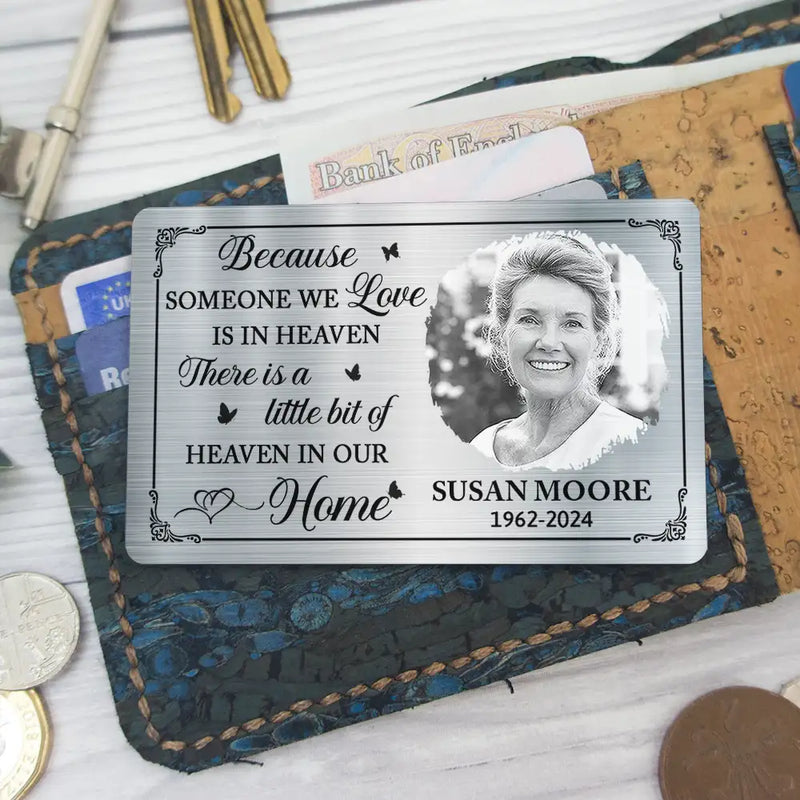 Bank of Engl
UK
Re
Because
SOMEONE WE Love
IS IN HEAVEN
There is a
little bit of
HEAVEN IN OUR
Home
SUSAN MOORE
1962-2024